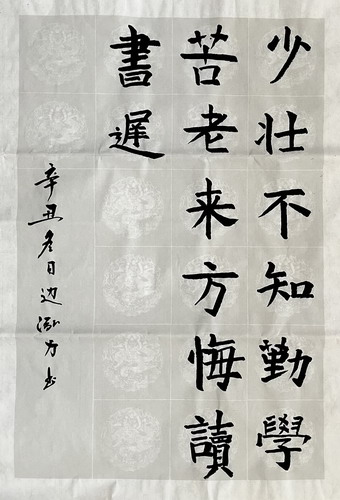 少壮不知勤學
苦老来方悔讀
書遲
辛丑冬日边泓方书